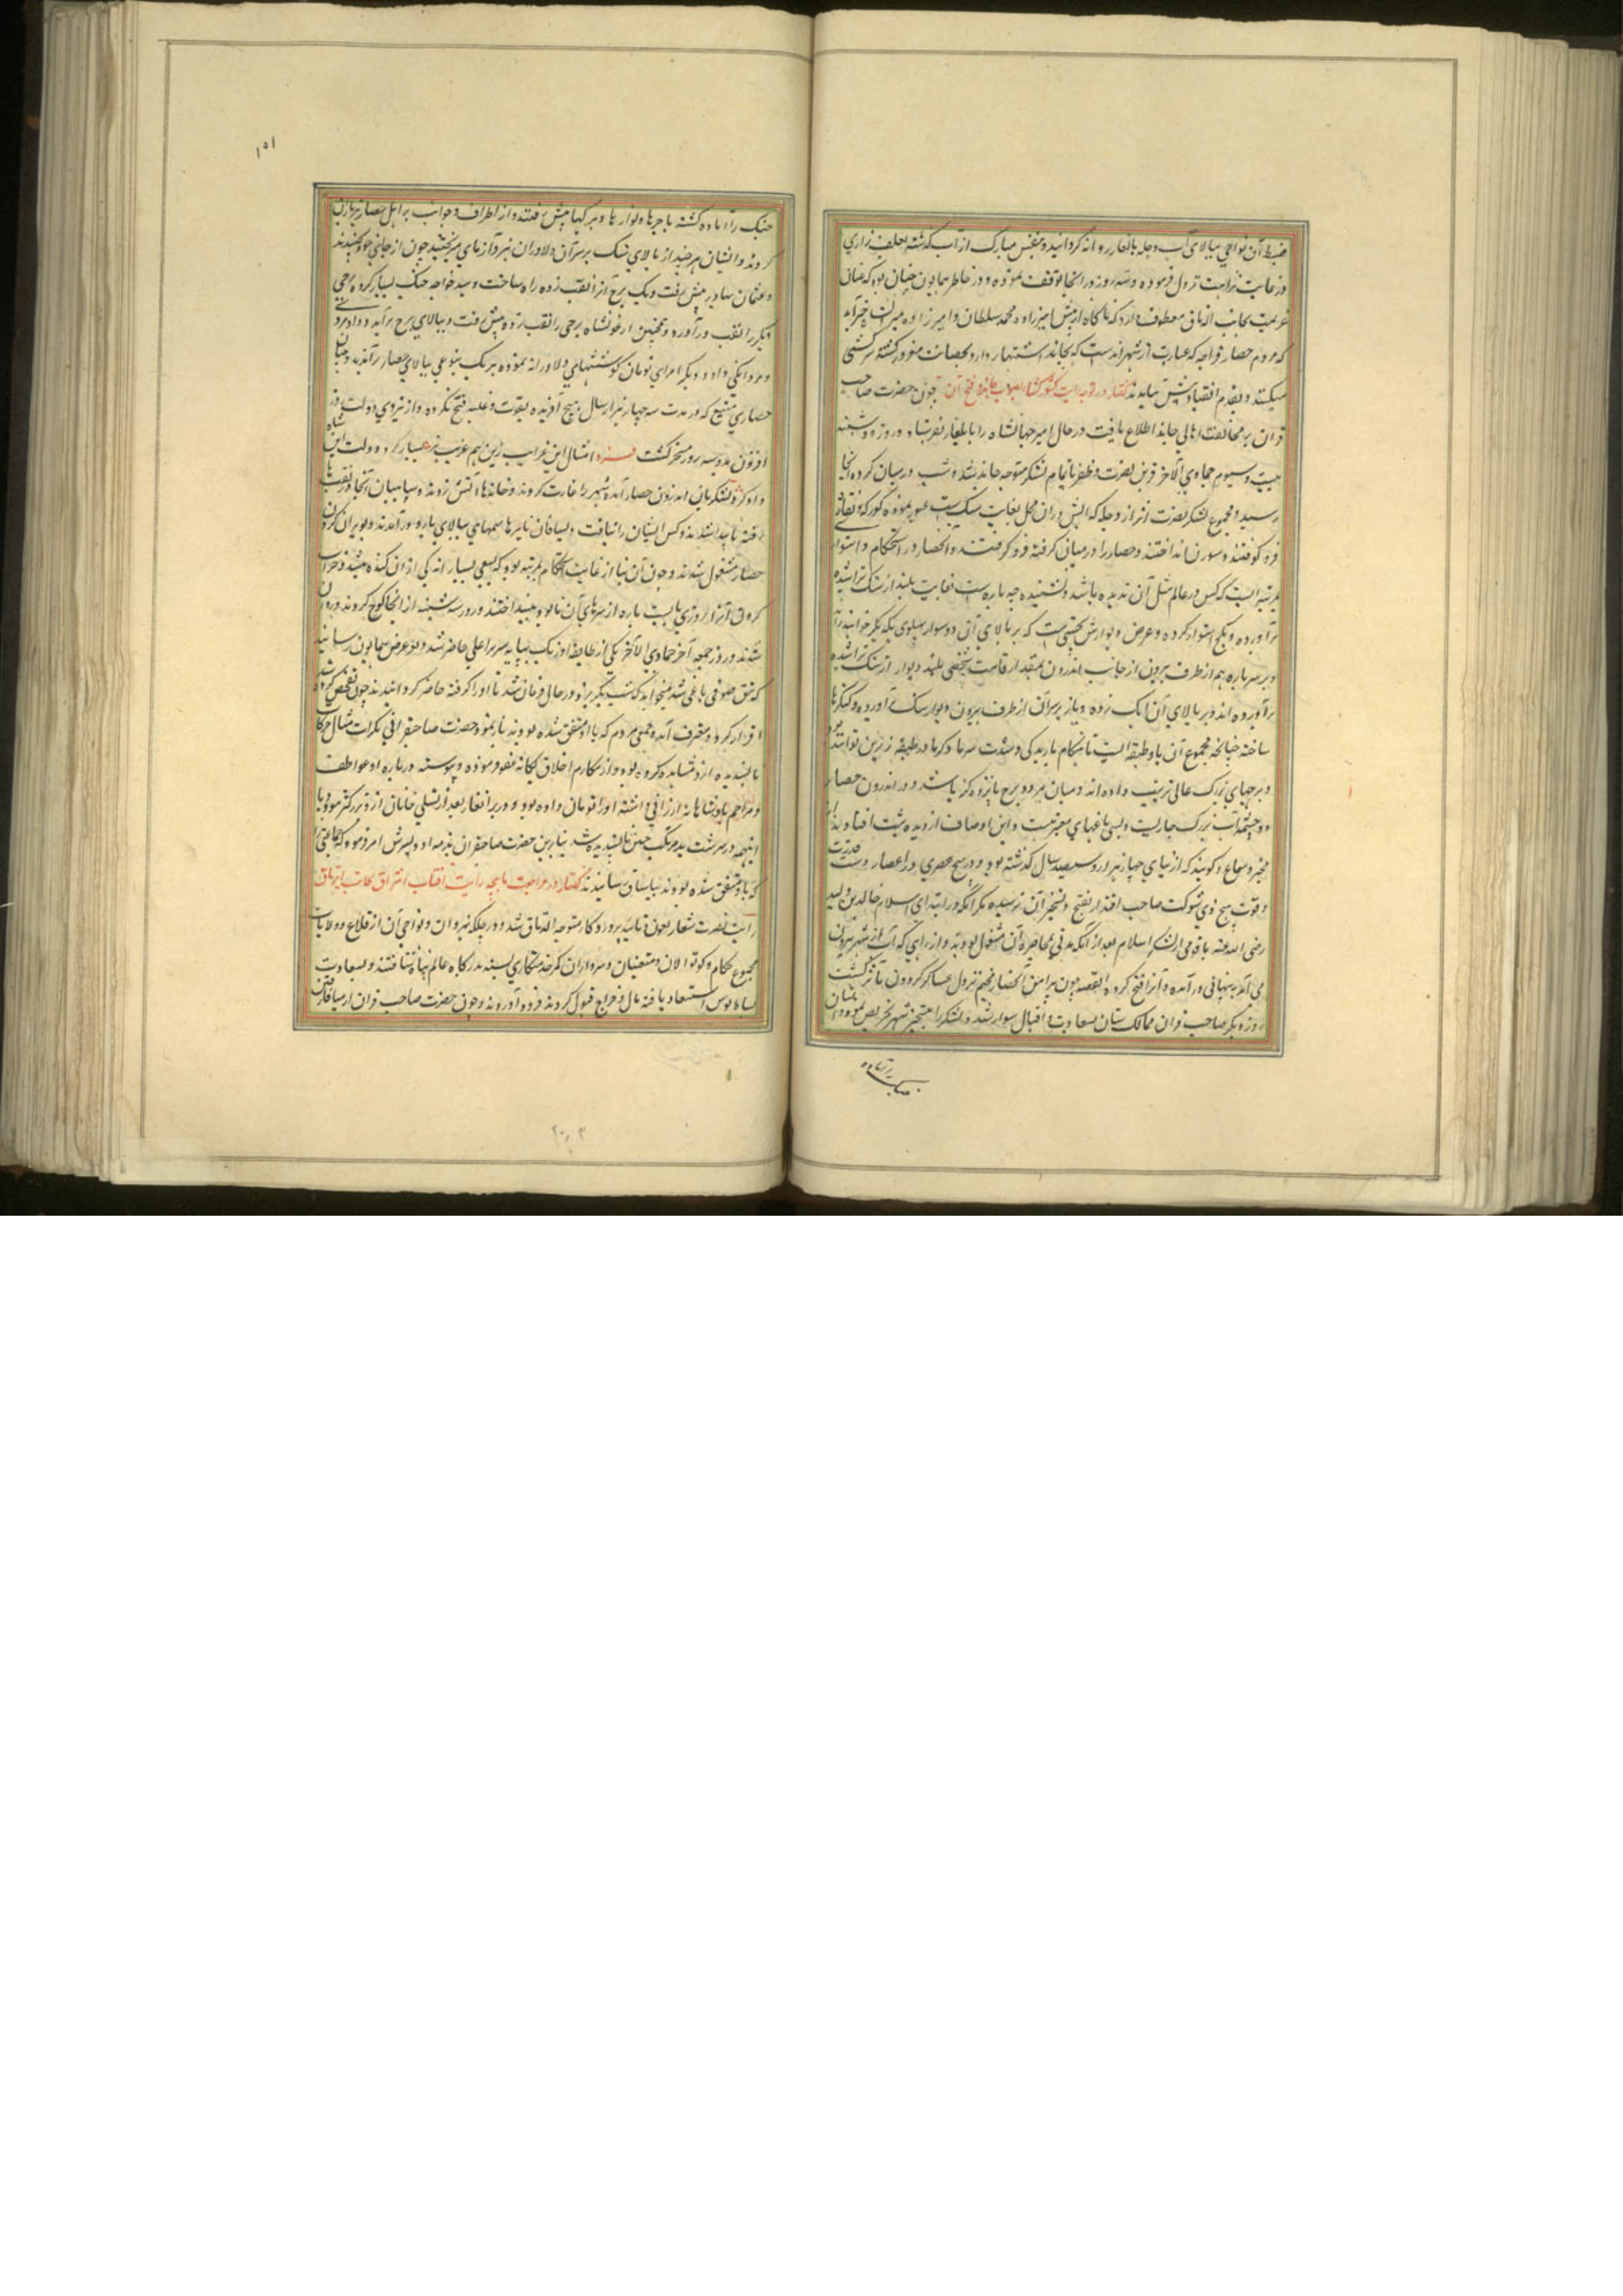 ضبط آن نواحی ببالای آب دجله بالغار روانه گردانید و بنفس مبارک از آب گذشته بعلف‌زاری
در غایت نزاهت نزول فرموده و سه روز در انجا توقف نموده و در خاطر همایون چنان بود که عنان
عزیمت بجانب الاتاق معطوف دارد که ناگاه از پیش امیرزاده محمد سلطان و امیرزاده میرانشاه خبر آمد
که مردم حصار قراجه که عبارت از شهر اندست که بحامد اشتهار دارد بحصانت مغرور گشته سرکشی
میکنند و بقدم انقیاد پیش نمی‌آیند گفتار در توجه رایت کشورگشا بصوب حامد و فتح آن چون حضرت صاحب
قران بر مخالفت اهالی حامد اطلاع یافت در حال امیر جهانشاه را بایلغار بفرستاد و روز دوشنبه
بیست و سیوم جمادی الآخر قرین نصرت و ظفر با تمام لشکر متوجه حامد شد و شب در میان کرده انجا
رسید و مجموع لشکر نصرت اثر از دجله که آبش در ان محل بغایت سبک است عبور نموده کورکه و نقاره
فرو کوفتند و سورن انداختند و حصار را در میان گرفته فرو گرفتند و آن حصار در استحکام و استواری
بمرتبه ایست که کس در عالم مثل آن ندیده باشد و نشنیده چه باره است بغایت بلند از سنگ تراشیده
برآورده و بگچ استوار کرده و عرض دیوارش بحیثیتی است که بر بالای آن دو سوار پهلوی یکدیگر توانند راند
و بر سر باره هم از طرف بیرون از جانب اندرون بمقدار قامت شخصی بلند دیوار از سنگ تراشیده
برآورده اند و بر بالای آن آهک زده و باز بر سر آن از طرف بیرون دیوار سنگ برآورده و کنگره‌ها
ساخته چنانچه مجموع آن باره دو طبقه است تا بهنگام بارندگی و شدت سرما و گرما در طبقه زیرین توانند بود
و برجهای بزرگ عالی ترتیب داده اند و میان هر دو برج پانزده گز باشد و در اندرون حصار
دو چشمه آب بزرگ جاریست و بسی باغهای معتبرست و این اوصاف از دیده ثبت افتاد نه از
مخبر و سماع و گویند که از بنای چهار هزار و سیصد سال گذشته بود و در هیچ عصری از اعصار دست قدرت
و قوت هیچ ذی شوکت صاحب اقتدار بفتح و تسخیر آن نرسیده مگر آنکه در ابتدای اسلام خالد بن ولید
رضی الله عنه با قومی از لشکر اسلام بعد از آنکه مدتی بمحاصره آن مشغول بودند و از راهی که آب از شهر بیرون
می آمد پنهانی در آمده و آنرا فتح کرده القصه چون پیرامن آنحصار مخیم نزول عساکر گردون مآثر گشت
روز دیگر صاحب قران ممالک ستان بسعادت و اقبال سوار شد و لشکر را بتسخیر شهر تحریص نمود و ایشان
جنگ را آماده
۱۵۱
جنگ را آماده گشته با چرها و تورها و سرکها پیش رفتند و از اطراف و جوانب بر اهل حصار تیرباران
کردند و ایشان هر چند از بالای سنگ بر سر آن دلاوران نبردآزمای میریختند چون از جای خود نجنبیدند
و عثمان بهادر پیش رفت و یک برج آنرا نقب زده راه ساخت و سید خواجه جنگ بسیار کرده برجی
دیگر را نقب در آورد و همچنین ارغونشاه برجی را نقب زده پیش رفت و ببالای برج برآمد و داد مردی
و مردانگی داد و دیگر امرای تومان کوششهای دلاورانه نموده هر یک بنوعی ببالای حصار برآمدند و چنان
حصاری منیع که در مدت سه چهار هزار سال هیچ آفریده بقوت و غلبه فتح نکرده و از نیروی دولت روز
افزون بدو سه روز مسخر گشت فرد امثال این غرایب زین هم غریب‌تر بسیار کرد دولت این شاه
دادگر و لشکریان اندرون حصار آمده شهر را غارت کردند و خانه‌ها آتش زدند و سپاهیان آنجا در نقبها
رفته ناپیدا شدند و کس ایشان را نیافت و یساقان با تبرها سهمها ببالای بارو در آمدند و بویران کردن
حصار مشغول شدند و چون آن بنا از غایت استحکام بمرتبه بود که بسعی بسیار اندکی از ان کنده میشد و خراب
کردن آنرا روزی بایست باره از سرهای آن بارو بینداختند و روز سه شنبه از انجا کوچ کردند و روان
شدند و روز جمعه آخر جمادی الآخر یکی از طایفه اوزبک بپایه سریر اعلی حاضر شد و بعز عرض همایون رسانید
که تمق صوفی باغی شد میخواهد که شب بگریزد در حال فرمان شد تا او را گرفته حاضر گردانیدند چون تفحص کرده شد
اقرار کرد و معترف آمد و جمعی مردم که با او متفق شده بودند بنمود حضرت صاحبقرانی بکرات مثال حرکات
ناپسندیده از و مشاهده کرده بود و از مکارم اخلاق ملکانه عفو فرموده و پیوسته درباره او عواطف
و مراحم پادشاهانه ارزانی داشته او را تومان داده بود و در برانغار بعد از تسلی خانان از و بزرگتر نبود و با
اینهمه در سرشت بد مرتکب چنین ناپسندیده شد بنابرین حضرت صاحبقران بند همه او و پسرش امر فرمود که جماعتی را
که با او متفق شده بودند بیاساق رسانیدند گفتار در مراجعت بابجه رایت آفتاب اشراق بجانب الاتاق
رایت نصرت شعار بعون و تائید پروردگار متوجه الاتاق شد و در جلکه نیروان و نواحی آن از قلاع و ولایات
مجموع حکام و کوتوالان و متعینان و سرداران کمر خدمتکاری بسته بدرگاه عالم پناه شتافتند و بسعادت
بساط بوس استسعاد یافته مال و خراج قبول کردند و فرود آوردند و چون حضرت صاحب قران از میافارقین